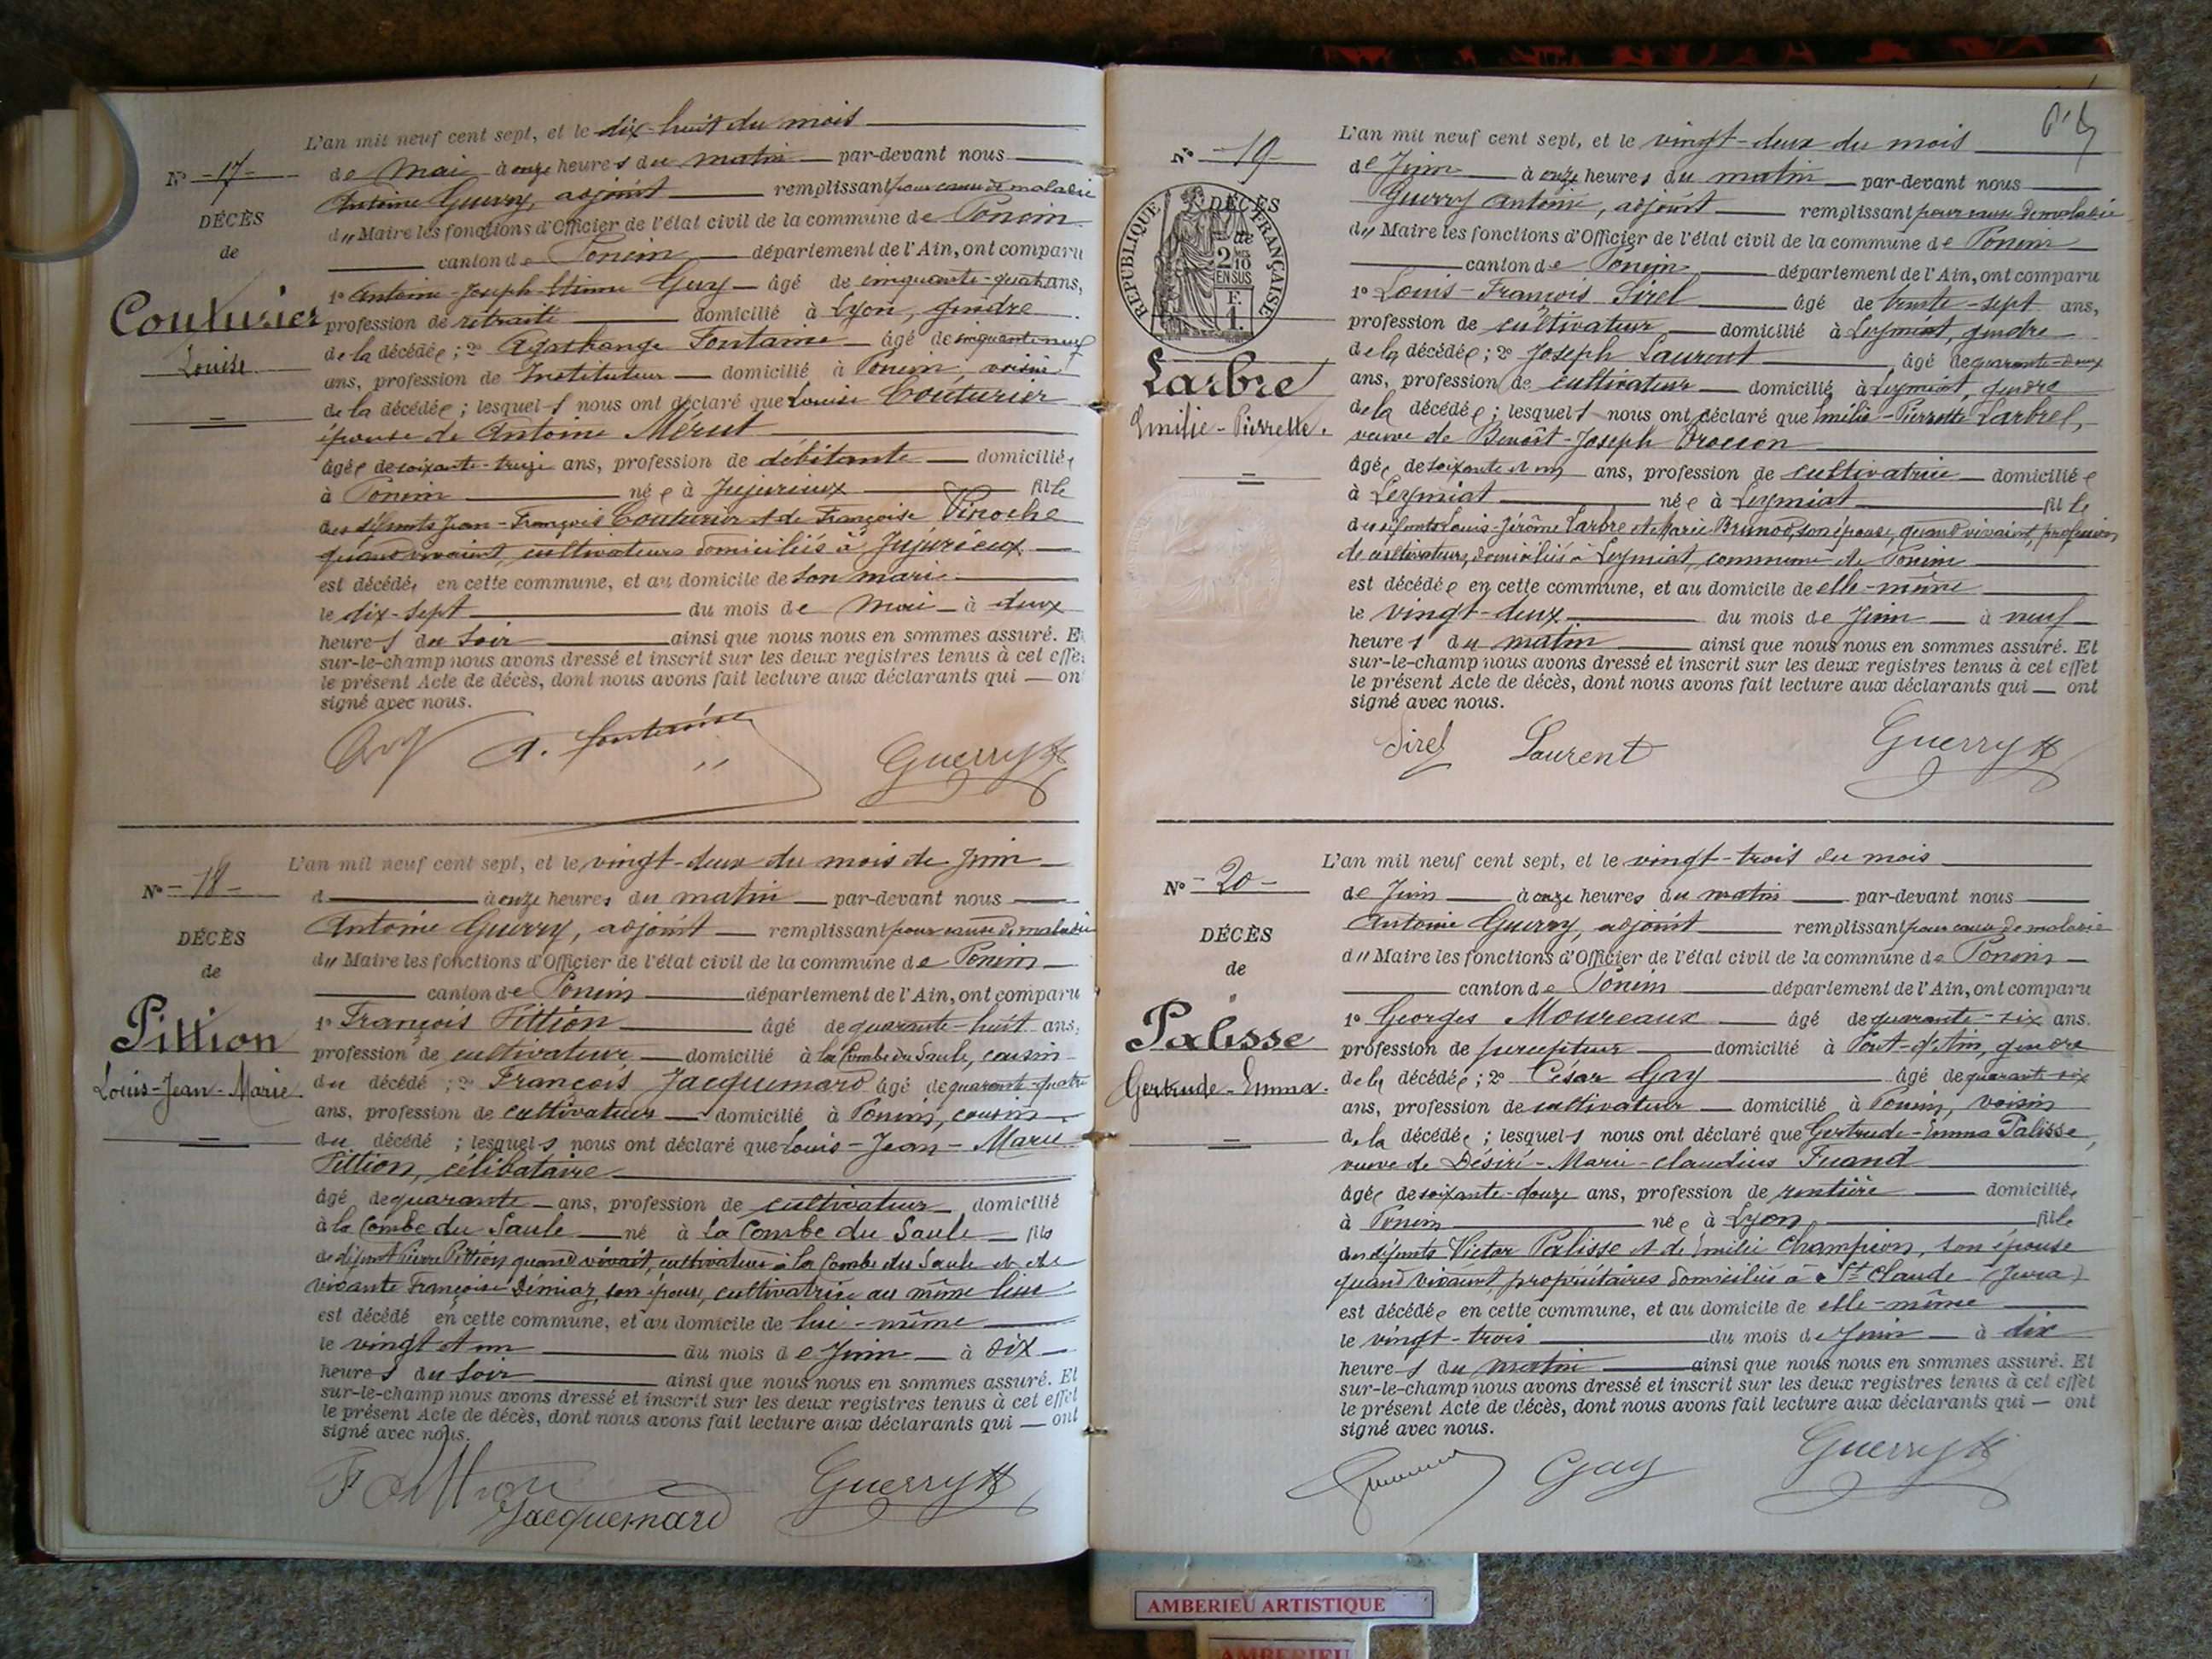 L'an mil neuf cent sept, et le dix-huit du mois
N° -17-
de Mai à onze heures du matin par-devant nous
Antoine Guerry, adjoint remplissant pour cause de maladie
DÉCÈS
du Maire les fonctions d'Officier de l'état civil de la commune de Poncin
de
canton de Poncin département de l'Ain, ont comparu
Couturier
Louise
1° Antoine-Joseph-Etienne Guy âgé de cinquante-quatre ans,
profession de retraité domicilié à Lyon, gendre
de la décédée ; 2° Agathange Fontaine âgé de cinquante neuf
ans, profession de Instituteur domicilié à Poncin, voisin
de la décédée ; lesquels nous ont déclaré que Louise Couturier
épouse de Antoine Merut
âgée de soixante-treize ans, profession de débitante domiciliée
à Poncin née à Jujurieux fille
des défunts Jean-François Couturier et de Françoise Pinoche
quand vivaient, cultivateurs domiciliés à Jujurieux
est décédée en cette commune, et au domicile de son mari
le dix-sept du mois de Mai à deux
heures du soir ainsi que nous nous en sommes assuré. Et
sur-le-champ nous avons dressé et inscrit sur les deux registres tenus à cet effet
le présent Acte de décès, dont nous avons fait lecture aux déclarants qui ont
signé avec nous.
A. Fontaine Guerry
L'an mil neuf cent sept, et le vingt-deux du mois de Juin
N° -18-
d à onze heures du matin par-devant nous
Antoine Guerry, adjoint remplissant pour cause de maladie
DÉCÈS
du Maire les fonctions d'Officier de l'état civil de la commune de Poncin
de
canton de Poncin département de l'Ain, ont comparu
Pittion
Louis-Jean-Marie
1° François Pittion âgé de quarante-huit ans,
profession de cultivateur domicilié à la Combe du Saule, cousin
du décédé ; 2° François Jacquemard âgé de quarante-quatre
ans, profession de cultivateur domicilié à Poncin, cousin
du décédé ; lesquels nous ont déclaré que Louis-Jean-Marie
Pittion, célibataire
âgé de quarante ans, profession de cultivateur domicilié
à la Combe du Saule né à La Combe du Saule fils
de défunt Pierre Pittion quand vivait, cultivateur à la Combe du Saule et de
vivante Françoise Démiaz, son épouse, cultivatrice au même lieu
est décédé en cette commune, et au domicile de lui-même
le vingt et un du mois de Juin à six
heures du soir ainsi que nous nous en sommes assuré. Et
sur-le-champ nous avons dressé et inscrit sur les deux registres tenus à cet effet
le présent Acte de décès, dont nous avons fait lecture aux déclarants qui ont
signé avec nous.
F Pittion Jacquemard Guerry
L'an mil neuf cent sept, et le vingt-deux du mois
N° -19-
de Juin à onze heures du matin par-devant nous
Guerry Antoine, adjoint remplissant pour cause de maladie
RÉPUBLIQUE FRANÇAISE
DÉCÈS
de
2/10 EN SUS
F. 1.
du Maire les fonctions d'Officier de l'état civil de la commune de Poncin
canton de Poncin département de l'Ain, ont comparu
1° Louis-François Sirel âgé de trente-sept ans,
profession de cultivateur domicilié à Leymiat, gendre
Larbre
Emilie-Pierrette.
de la décédée ; 2° Joseph Laurent âgé de quarante-deux
ans, profession de cultivateur domicilié à Leymiat, gendre
de la décédée ; lesquels nous ont déclaré que Emilie-Pierrette Larbre,
veuve de Benoît-Joseph
âgée de soixante et un ans, profession de cultivatrice domiciliée
à Leymiat née à Leymiat fille
des défunts Louis-Jérôme Larbre et Marie Brunod, son épouse, quand vivaient, profession
de cultivateurs, domiciliés à Leymiat, commune de Poncin
est décédée en cette commune, et au domicile de elle-même
le vingt-deux du mois de Juin à neuf
heures du matin ainsi que nous nous en sommes assuré. Et
sur-le-champ nous avons dressé et inscrit sur les deux registres tenus à cet effet
le présent Acte de décès, dont nous avons fait lecture aux déclarants qui ont
signé avec nous.
Sirel Laurent Guerry
L'an mil neuf cent sept, et le vingt-trois du mois
N° -20-
de Juin à onze heures du matin par-devant nous
Antoine Guerry, adjoint remplissant pour cause de maladie
DÉCÈS
du Maire les fonctions d'Officier de l'état civil de la commune de Poncin
de
canton de Poncin département de l'Ain, ont comparu
Palisse
Gertrude-Emma.
1° Georges Moureaux âgé de quarante-six ans.
profession de percepteur domicilié à Pont-d'Ain, gendre
de la décédée ; 2° César Gay âgé de quarante six
ans, profession de cultivateur domicilié à Poncin, voisin
de la décédée ; lesquels nous ont déclaré que Gertrude-Emma Palisse,
veuve de Désiré-Marie-Claudius Fuand
âgée de soixante-douze ans, profession de rentière domiciliée
à Poncin née à Lyon fille
des défunts Victor Palisse et de Emilie Champion, son épouse
quand vivaient, propriétaires domiciliés à St Claude (Jura)
est décédée en cette commune, et au domicile de elle-même
le vingt-trois du mois de Juin à dix
heures du matin ainsi que nous nous en sommes assuré. Et
sur-le-champ nous avons dressé et inscrit sur les deux registres tenus à cet effet
le présent Acte de décès, dont nous avons fait lecture aux déclarants qui ont
signé avec nous.
Gay Guerry
AMBERIEU ARTISTIQUE
AMBERIEU